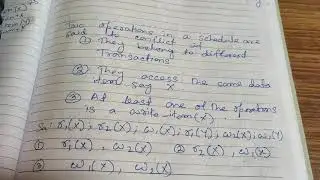 Two operations in a schedule are
said to conflict if
① They belong to different
Transactions
② They access the same data
item say X
③ At least one of the operations
is a write item (X)
S₁: r₁(X); r₂(X); w₁(X); r₁(Y); w₂(X); w₁(Y)
① r₁(X), w₂(X) ② r₂(X), w₁(X)
③ w₁(X), w₂(X)